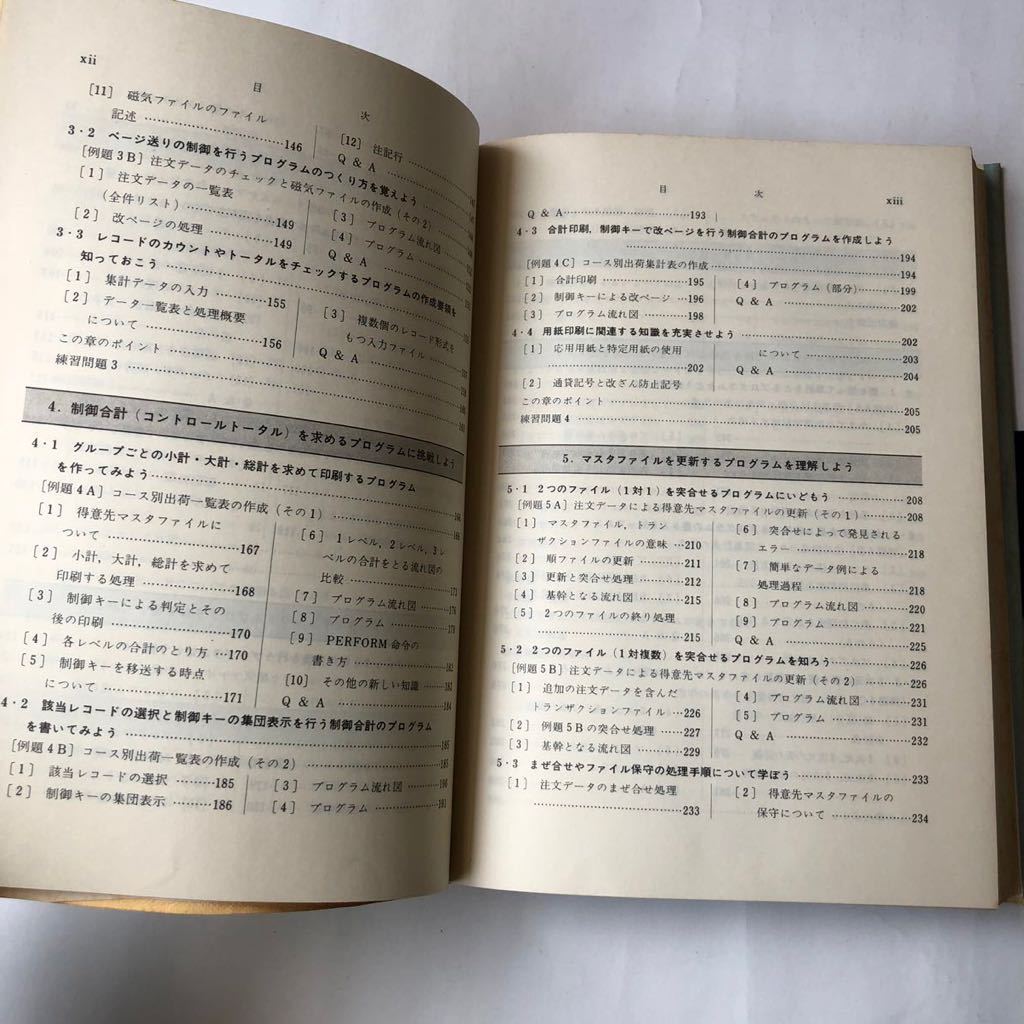 xii
目 次
[11] 磁気ファイルのファイル
記述 ……146
[12] 注記行 ……
Q & A ……
3・2 ページ送りの制御を行うプログラムのつくり方を覚えよう ……
[例題3B] 注文データのチェックと磁気ファイルの作成（その2）……
[1] 注文データの一覧表
(全件リスト) ……149
[2] 改ページの処理 ……149
[3] プログラム流れ図 ……
[4] プログラム ……
Q & A ……
3・3 レコードのカウントやトータルをチェックするプログラムの作成要領を
知っておこう ……
[1] 集計データの入力 ……155
[2] データ一覧表と処理概要
について ……156
[3] 複数個のレコード形式を
もつ入力ファイル ……
Q & A ……
この章のポイント ……
練習問題3 ……
4. 制御合計（コントロールトータル）を求めるプログラムに挑戦しよう
4・1 グループごとの小計・大計・総計を求めて印刷するプログラム
を作ってみよう ……166
[例題4A] コース別出荷一覧表の作成（その1）……166
[1] 得意先マスタファイルに
ついて ……167
[2] 小計，大計，総計を求めて
印刷する処理 ……168
[3] 制御キーによる判定とその
後の印刷 ……170
[4] 各レベルの合計のとり方 …170
[5] 制御キーを移送する時点
について ……171
[6] 1レベル，2レベル，3レ
ベルの合計をとる流れ図の
比較 ……171
[7] プログラム流れ図 ……176
[8] プログラム ……179
[9] PERFORM 命令の
書き方 ……182
[10] その他の新しい知識 …183
Q & A ……184
4・2 該当レコードの選択と制御キーの集団表示を行う制御合計のプログラム
を書いてみよう ……185
[例題4B] コース別出荷一覧表の作成（その2）……185
[1] 該当レコードの選択 ……185
[2] 制御キーの集団表示 ……186
[3] プログラム流れ図 ……190
[4] プログラム ……191
目 次
xiii
Q & A ……193
4・3 合計印刷，制御キーで改ページを行う制御合計のプログラムを作成しよう
……194
[例題4C] コース別出荷集計表の作成 ……194
[1] 合計印刷 ……195
[2] 制御キーによる改ページ …196
[3] プログラム流れ図 ……198
[4] プログラム（部分）……199
Q & A ……202
4・4 用紙印刷に関連する知識を充実させよう ……202
[1] 応用用紙と特定用紙の使用
……202
[2] 通貨記号と改ざん防止記号
について ……203
Q & A ……204
この章のポイント ……205
練習問題4 ……205
5. マスタファイルを更新するプログラムを理解しよう
5・1 2つのファイル（1対1）を突合せるプログラムにいどもう ……208
[例題5A] 注文データによる得意先マスタファイルの更新（その1）……208
[1] マスタファイル，トラン
ザクションファイルの意味 …210
[2] 順ファイルの更新 ……211
[3] 更新と突合せ処理 ……212
[4] 基幹となる流れ図 ……215
[5] 2つのファイルの終り処理
……215
[6] 突合せによって発見される
エラー ……218
[7] 簡単なデータ例による
処理過程 ……218
[8] プログラム流れ図 ……220
[9] プログラム ……221
Q & A ……225
5・2 2つのファイル（1対複数）を突合せるプログラムを知ろう ……226
[例題5B] 注文データによる得意先マスタファイルの更新（その2）……226
[1] 追加の注文データを含んだ
トランザクションファイル …226
[2] 例題5Bの突合せ処理 ……227
[3] 基幹となる流れ図 ……229
[4] プログラム流れ図 ……231
[5] プログラム ……231
Q & A ……232
5・3 まぜ合せやファイル保守の処理手順について学ぼう ……233
[1] 注文データのまぜ合せ処理
……233
[2] 得意先マスタファイルの
保守について ……234